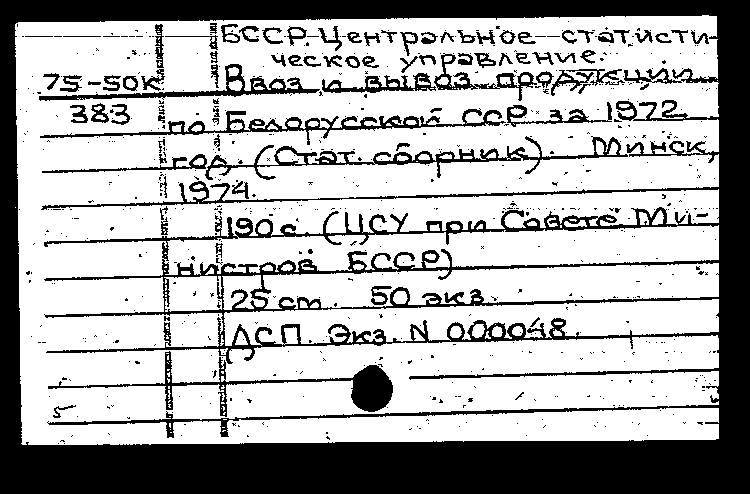 БССР. Центральное статисти-
ческое управление.
75-50к Ввоз и вывоз продукции
383 по Белорусской ССР за 1972
год. (Стат. сборник). Минск,
1974.
190 с. (ЦСУ при Совете Ми-
нистров БССР)
25 см. 50 экз.
ДСП. Экз. N 000048.
5